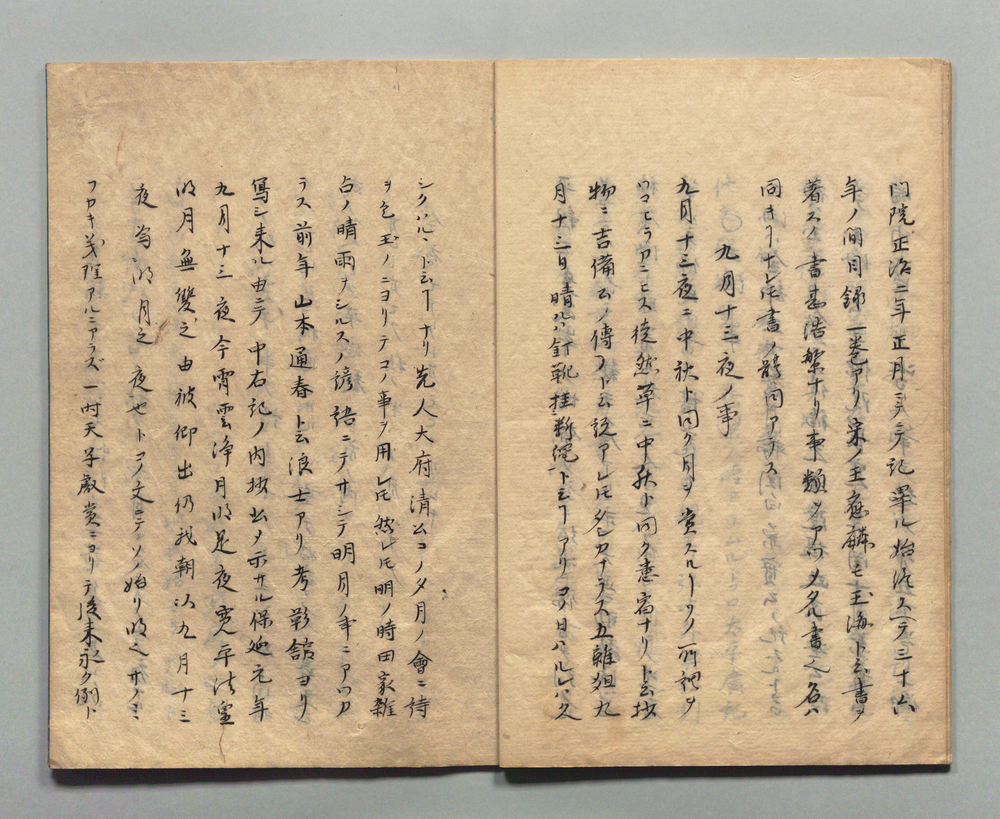 門院正治二年正月ミヅカラ記畢ル始終スヘテ三十六
年ノ間目録一巻アリ宋ノ王應麟モ玉海ト云書ヲ
著スノ書甚浩繁ナリ事類ヲアツメタル書ノ名ハ
同キヿナレ𪜈書ノ躰同アラス
九月十三夜ノ事
九月十三夜ニ中秋ト同ク月ヲ賞スルヿソノ所謂ヲ
徒然草ニ中秋ト同ク婁宿ナリト云抄
物ニ吉備公ノ傳フト云説アレ𪜈タシカナラス五雜俎九
月十三日晴ハ釘靴挂斷繩ト云ヿアリコノ日ハルレハ久
シクハルヽト云ヿナリ先人大府清公コノ夕月ノ會ニ詩
ヲ乞玉ノニヨリテコノ事ヲ用レ𪜈然レ𪜈明ノ時田家雜
占ノ晴雨ヲシルスノ諺語ニテサシテ明月ノ事ニアツカ
ラス前年山本通春ト云浪士アリ考彰舘ヨリ
寫シ来ル由ニテ中右記ノ内抄出ヲ示サル保延元年
九月十三夜今宵雲浄月明是夜寛平法皇
明月無雙之由被仰出仍我朝以九月十三
夜為明月之夜也トコノ文ニテソノ始リ明之サノミ
フカキ義理アルニアラズ一時天子厳賞ニヨリテ後来永ク例ト